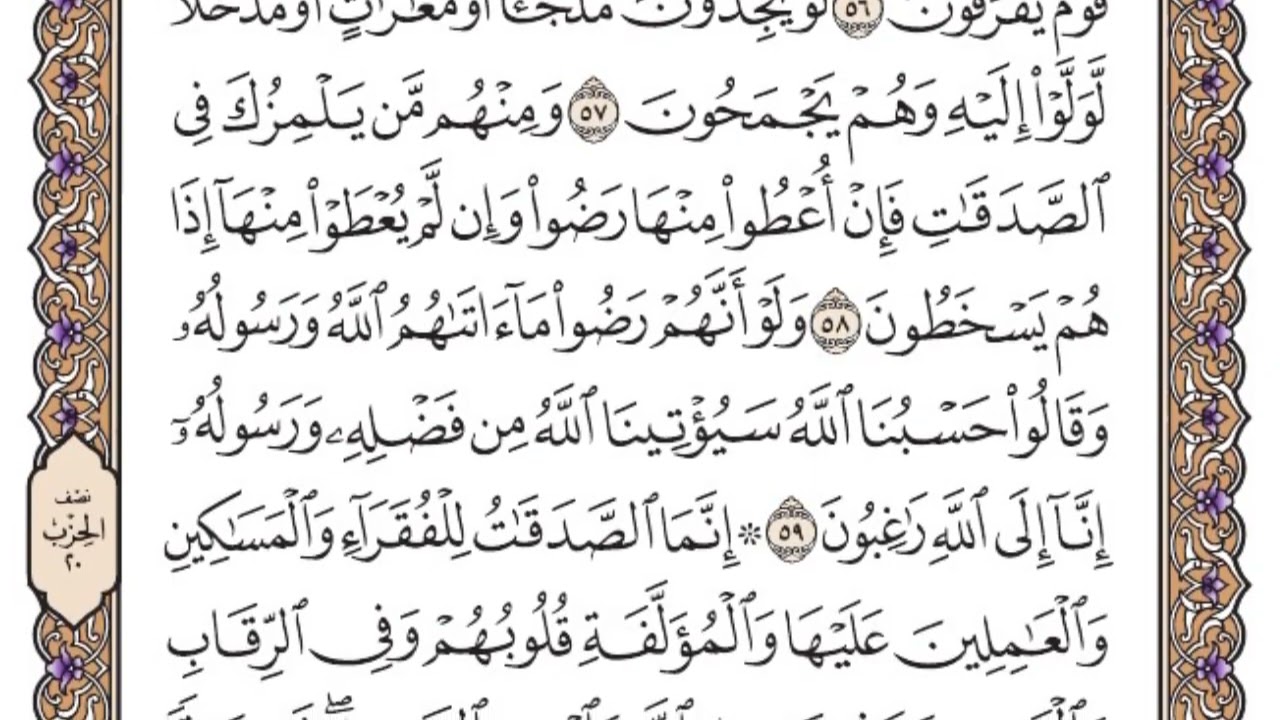 قَوۡمٞ يَفۡرَقُونَ ٥٦ لَوۡ يَجِدُونَ مَلۡجَـًٔا أَوۡ مَغَٰرَٰتٍ أَوۡ مُدَّخَلٗا
لَّوَلَّوۡاْ إِلَيۡهِ وَهُمۡ يَجۡمَحُونَ ٥٧ وَمِنۡهُم مَّن يَلۡمِزُكَ فِي
ٱلصَّدَقَٰتِ فَإِنۡ أُعۡطُواْ مِنۡهَا رَضُواْ وَإِن لَّمۡ يُعۡطَوۡاْ مِنۡهَآ إِذَا
هُمۡ يَسۡخَطُونَ ٥٨ وَلَوۡ أَنَّهُمۡ رَضُواْ مَآ ءَاتَىٰهُمُ ٱللَّهُ وَرَسُولُهُۥ
وَقَالُواْ حَسۡبُنَا ٱللَّهُ سَيُؤۡتِينَا ٱللَّهُ مِن فَضۡلِهِۦ وَرَسُولُهُۥٓ
إِنَّآ إِلَى ٱللَّهِ رَٰغِبُونَ ٥٩ ۞ إِنَّمَا ٱلصَّدَقَٰتُ لِلۡفُقَرَآءِ وَٱلۡمَسَٰكِينِ
وَٱلۡعَٰمِلِينَ عَلَيۡهَا وَٱلۡمُؤَلَّفَةِ قُلُوبُهُمۡ وَفِي ٱلرِّقَابِ
نصف
الحزب
٢٠